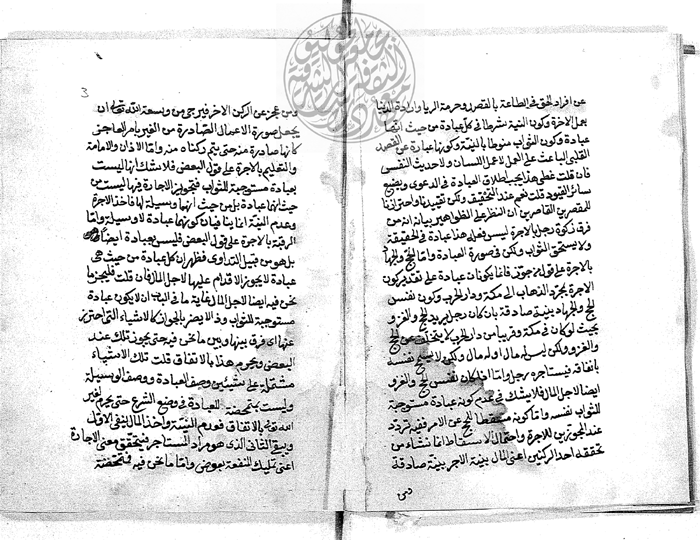 عن افراد الحق فى الطاعة بالقصد وحرمة الريا وارادة الدنيا
بعمل الاخرة وكون النية شرطا فى كل عبادة من حيث انها
عبادة وكون الثواب منوطا بالنية وكونها عبارة عن القصد
القلبى الباعث على العمل لا عمل اللسان ولا حديث النفس
فان قلت فعلى هذا يجب اطلاق العبادة فى الدعوى ويضيع
سائر القيود قلت نعم عند التحقيق ولكن تقييدنا واحترازنا
للمقصرين القاصرين ان النظر على الظواهر بيانه ان من
فرق زكوة رجل بالاجرة ليس فعله هذا عبادة فى الحقيقة
ولا يستحق الثواب ولكن فى صورة العبادة واما الحج والجهاد
بالاجرة على قول من جوز فانما يكونان عبادة على تقدير كون
الاجرة بمجرد الذهاب الى مكة ودار الحرب وكون نفس
الحج والجهاد بنية صادقة بان كان رجل يريد الحج والغزو
بحيث لو كان فى مكة وقريبا من دار الحرب لا يتخلف عن الحج
والغزو ولكن ليس له مال او له مال ولكن لا يسمح نفسه
بانفاقه فيستاجره رجل واما اذا كان نفس الحج والغزو
ايضا لاجل المال فلا يشك فى عدم كونه عبادة مستوجبة
للثواب نفسه واما كونه مسقطا للحج عن الامر ففيه تردد
عند المجوزين للاجرة واحتمال الاسقاط انما نشاء من
تحققه احد الركنين اعنى المال بنية الاجر بنية صادقة
ومن عجز عن الركن الاخر فيرجى من وسعة الله تعالى ان
يجعل صورة الاعمال الصادرة من الغير بامر العاجز
كانها صادرة منه حتى يتم ركناه منه واما الاذان والامامة
والتعليم بالاجرة على قول البعض فلا شك انها ليست
بعبادة مستوجبة للثواب فتجويز الاجارة فيها ليست من
حيث انها عبادة بل من حيث انها وسيلة لها فاخذ الاجرة
وعدم النية انما ينافيان كونهما عبادة لا وسيلة واما
الرقية بالاجرة على قول البعض فليس بعبادة ايضا
بل هو من قبيل التداوى فظهر ان كل عبادة من حيث هى
عبادة لا يجوز الاقدام عليها لاجل المال فان قلت فليجز ما
نحن فيه ايضا لاجل المال لغاية ما فى الباب ان لا يكون عبادة
مستوجبة للثواب وذا لا يضر بالجواز كالاشياء التى احترز
عنها اى فرق بينها وبين ما نحن فيه حتى يجوز تلك عند
البعض ويحرم هذا بالاتفاق قلت تلك الاشياء
مشتملة على شيئين وصف العبادة ووصف الوسيلة
وليست بمتمحضة للعبادة فى وضع الشرع حتى يحرم لغير
الله تعالى بالاتفاق فعدم النية واخذ المال لنفى الاول
ويبقى الثانى الذى هو مراد المستاجر فيتحقق معنى الاجارة
اعنى تمليك المنفعة بعوض واما ما نحن فيه فمتمحضة
3